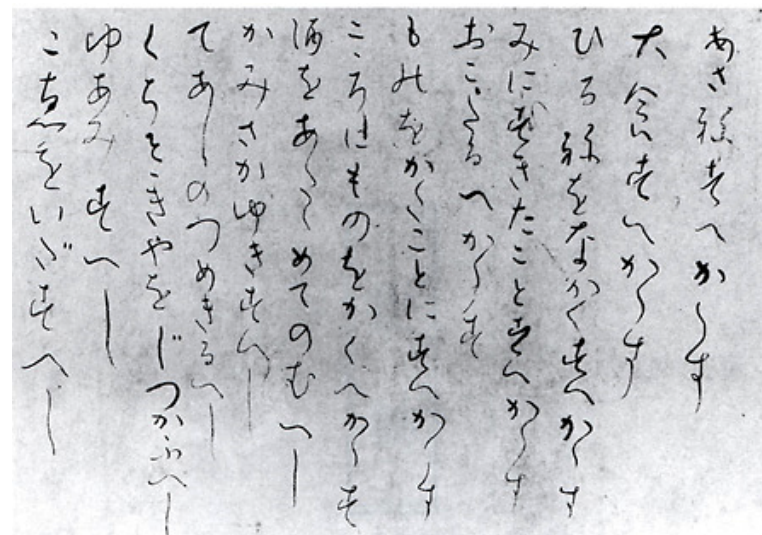 あさ寝すへからす
大食すへからす
ひる寝をなかくすへからす
みにすきたことすへからす
おこたるへからす
ものをかくことにすへからす
こゝろにものをかくへからす
酒をあたゝめてのむへし
かみさかゆきすへし
てあしのつめきるへし
くちそゝきやをじつかふへし
ゆあみすへし
こゑをいだすへし